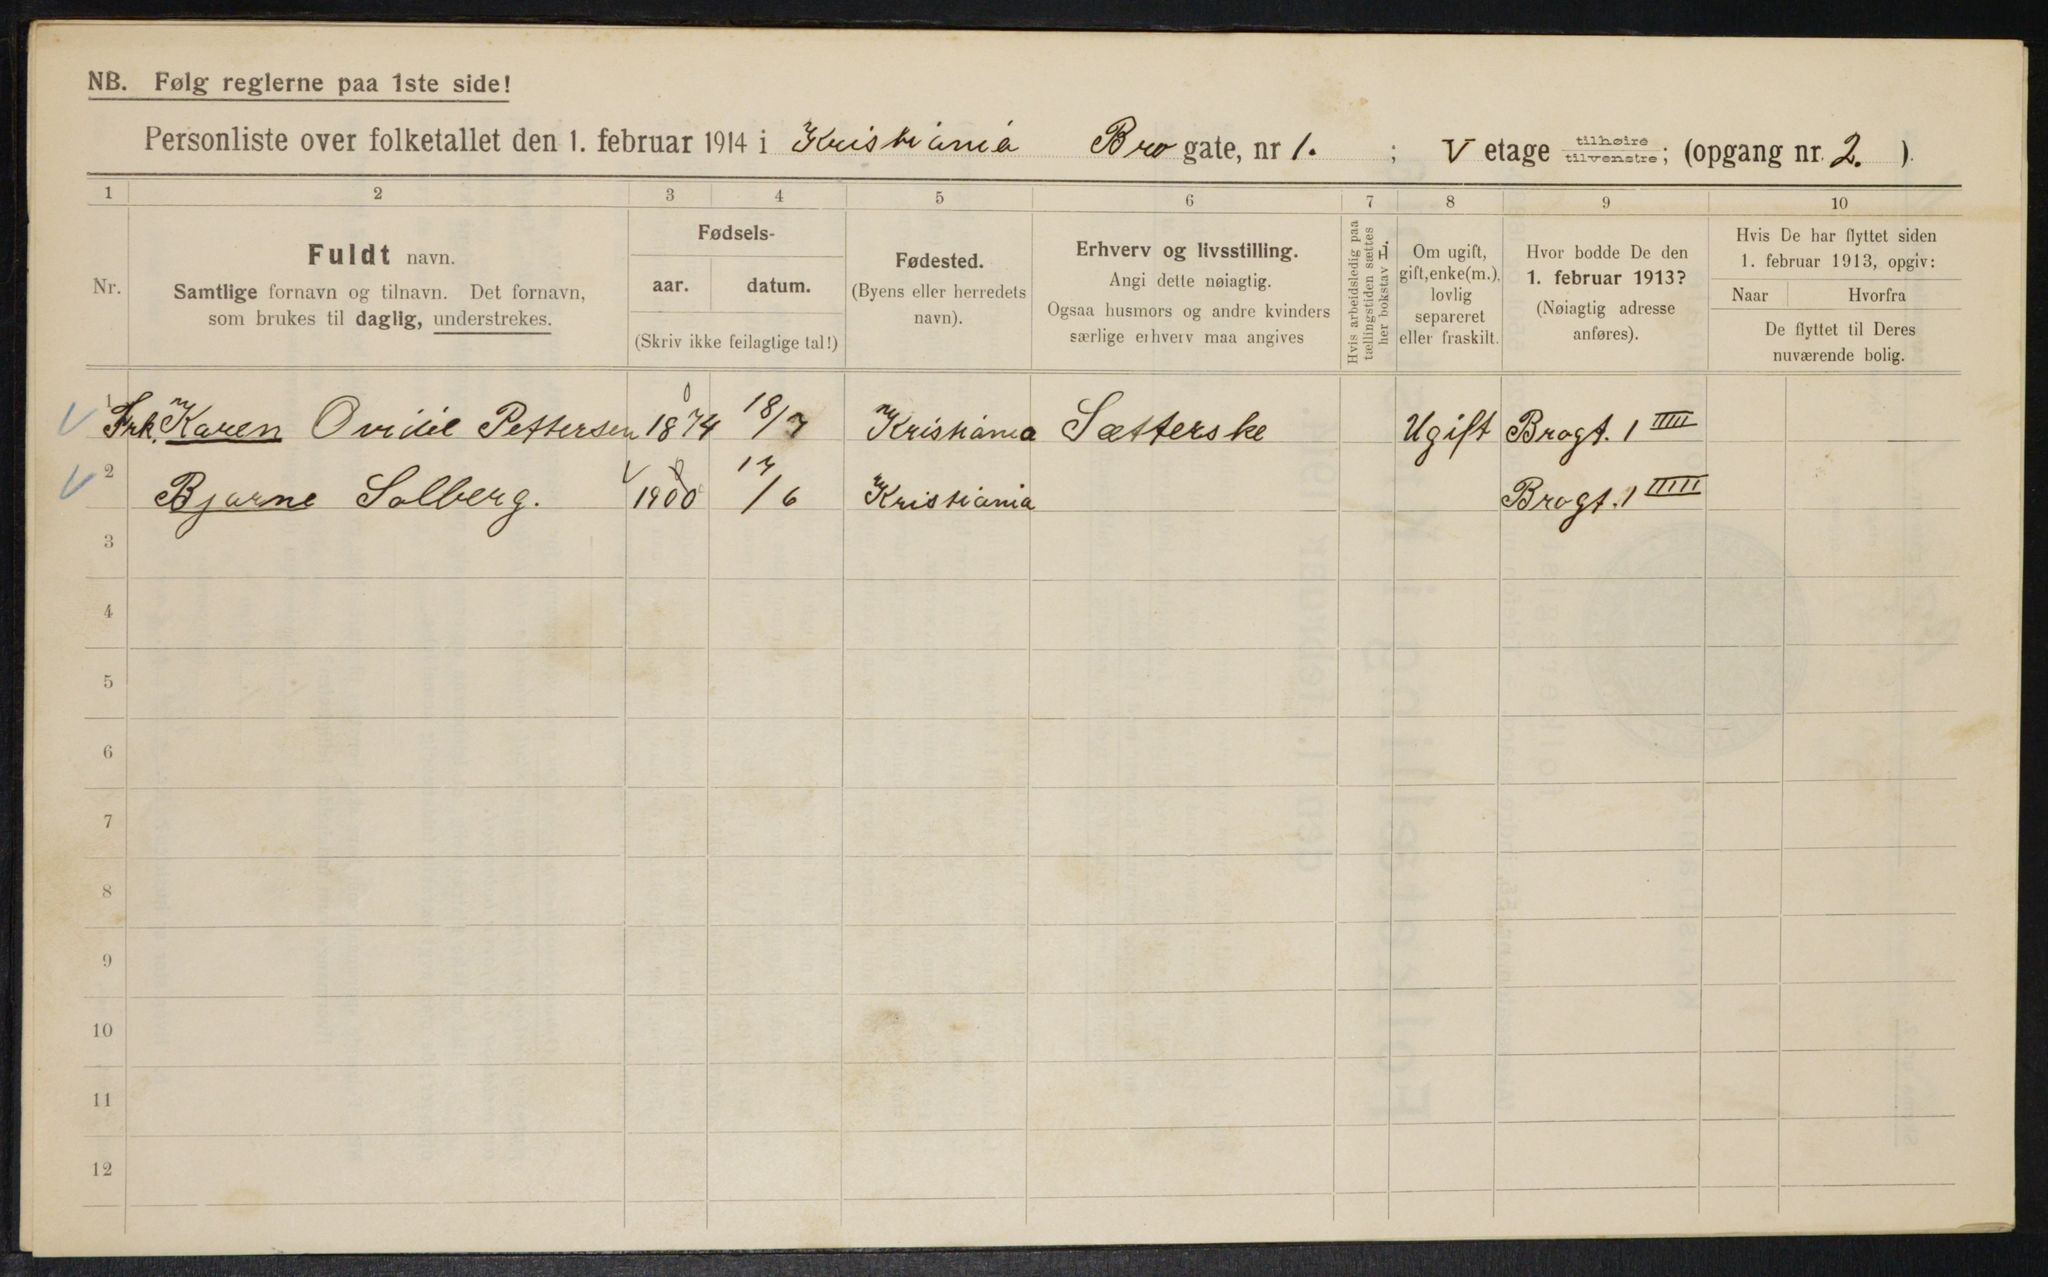 NB. Følg reglerne paa 1ste side!
Personliste over folketallet den 1. februar 1914 i Kristiania Bro gate, nr 1. ; V etage tilhøire tilvenstre; (opgang nr. 2. ).
1 2 3 4 5 6 7 8 9 10
Nr.
Fuldt navn.
Samtlige fornavn og tilnavn. Det fornavn,
som brukes til daglig, understrekes.
Fødsels-
aar. datum.
(Skriv ikke feilagtige tal!)
Fødested.
(Byens eller herredets
navn).
Erhverv og livsstilling.
Angi dette nøiagtig.
Ogsaa husmors og andre kvinders
særlige erhverv maa angives
Hvis arbeidsledig paa
tællingstiden sættes
her bokstav L.
Om ugift,
gift, enke(m.),
lovlig
separeret
eller fraskilt.
Hvor bodde De den
1. februar 1913?
(Nøiagtig adresse
anføres).
Hvis De har flyttet siden
1. februar 1913, opgiv:
Naar Hvorfra
De flyttet til Deres
nuværende bolig.
1 Frk. Karen Ovidie Pettersen 1874 18/7 Kristiania Sætterske Ugift Brogt. 1 IIIII
2 Bjarne Solberg. 1900 17/6 Kristiania Brogt. 1 IIIII
3
4
5
6
7
8
9
10
11
12